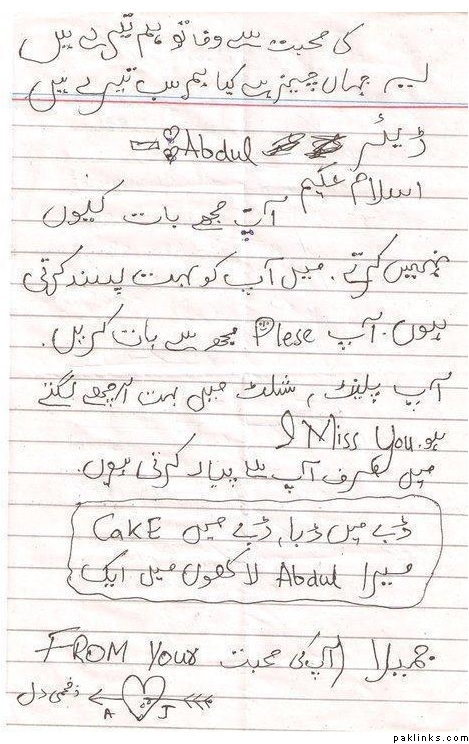 کی محبت سے وفا تو ہم تیرے ہیں
یہ جہاں چیز ہے کیا ہم سب تیرے ہیں
ڈیئر Abdul
اسلام علیکم
آپ مجھے بات کیوں
نہیں کرتے. میں آپ کو بہت پسند کرتی
ہوں. آپ Plese مجھ سے بات کریں.
آپ پلینڑ، شلٹ میں بہت اچھے لگتے
ہو. I Miss You
میں صرف آپ سے پیار کرتی ہوں.
ڈبے میں ڈبا، ڈبے میں CaKE
میرا Abdul لاکھوں میں ایک
FROM Your (آپ کی محبت جمیلا
زخمی دل
A J
paklinks.com